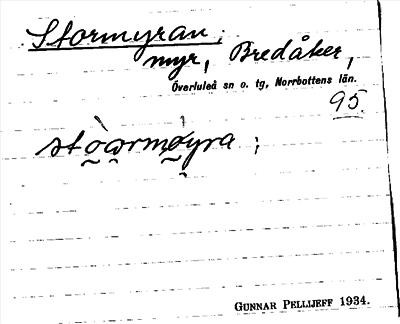 Stormyran,
myr, Bredåker,
Överluleå sn o. tg, Norrbottens län.
95.
GUNNAR PELLIJEFF 1934.